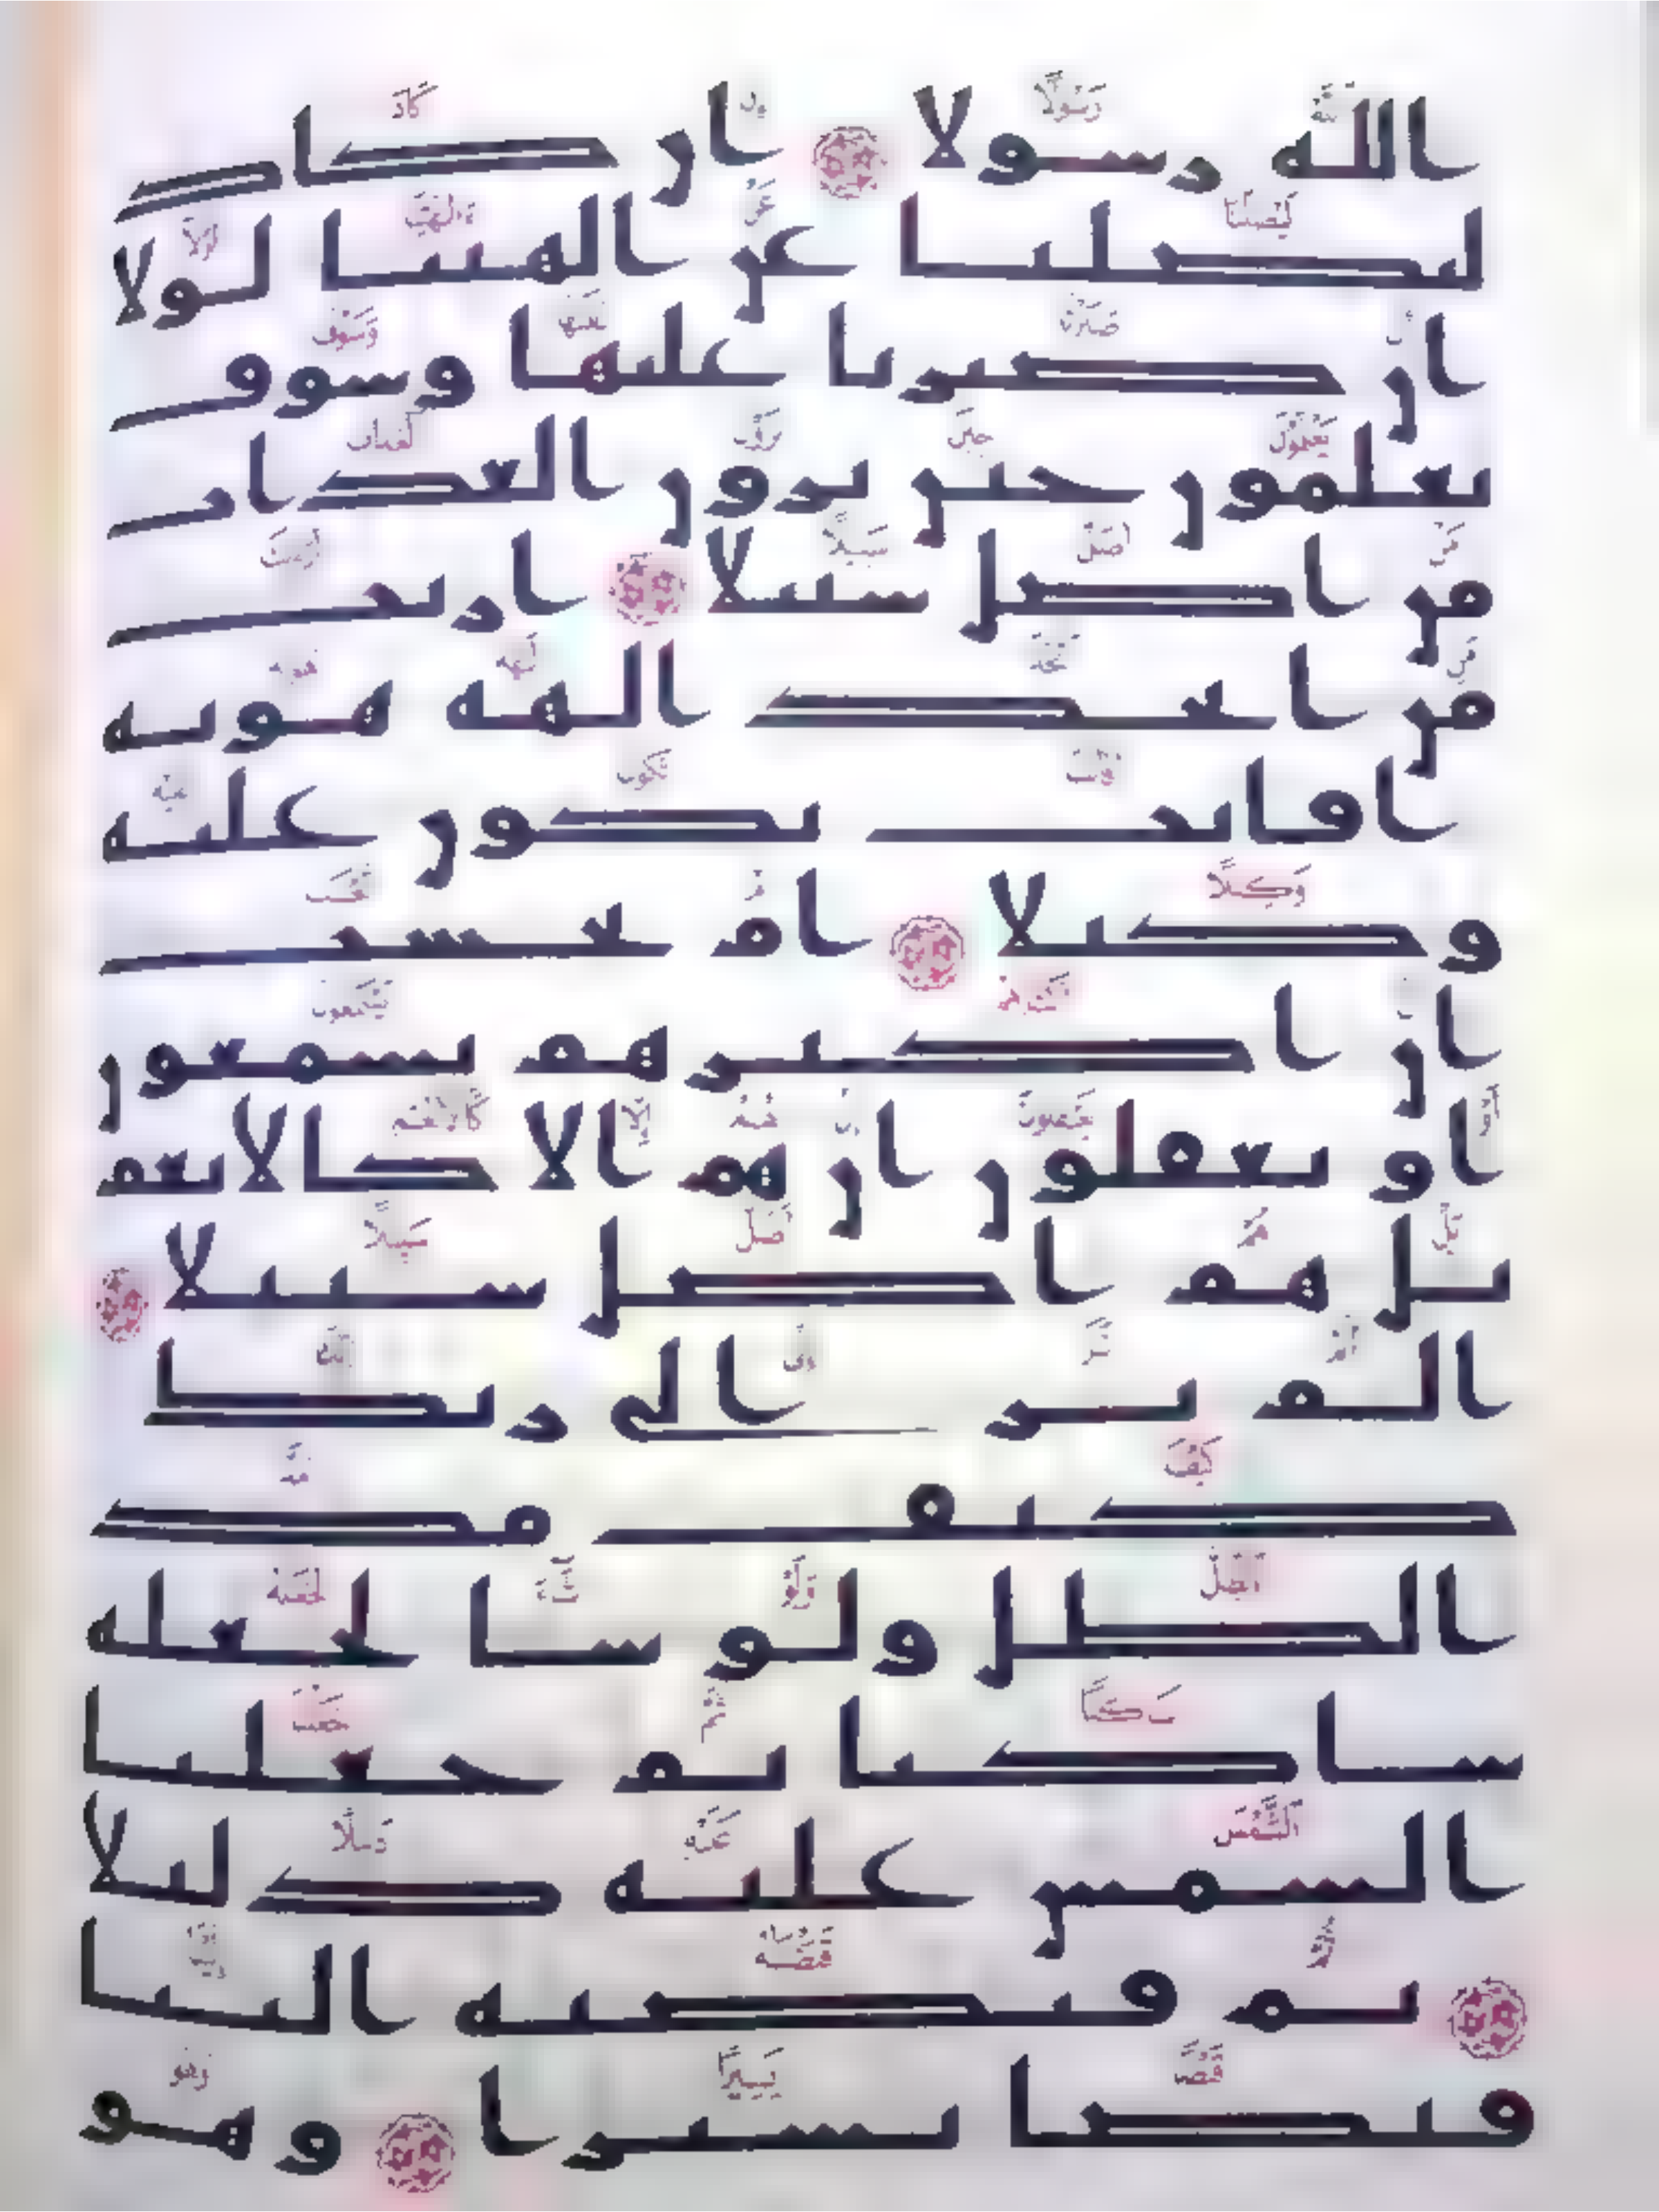 الله رسولا ان كاد
ليضلنا عن الهتنا لولا
ان صبرنا عليها وسوف
يعلمون حين يرون العذاب
من اضل سبيلا اريت
من اتخذ الهه هويه
افانت تكون عليه
وكيلا ام تحسب
ان اكثرهم يسمعون
او يعقلون ان هم الا كالانعم
بل هم اضل سبيلا
الم تر الى ربك
كيف مد
الظل ولو شا لجعله
ساكنا ثم جعلنا
الشمس عليه دليلا
ثم قبضنه الينا
قبضا يسيرا وهو